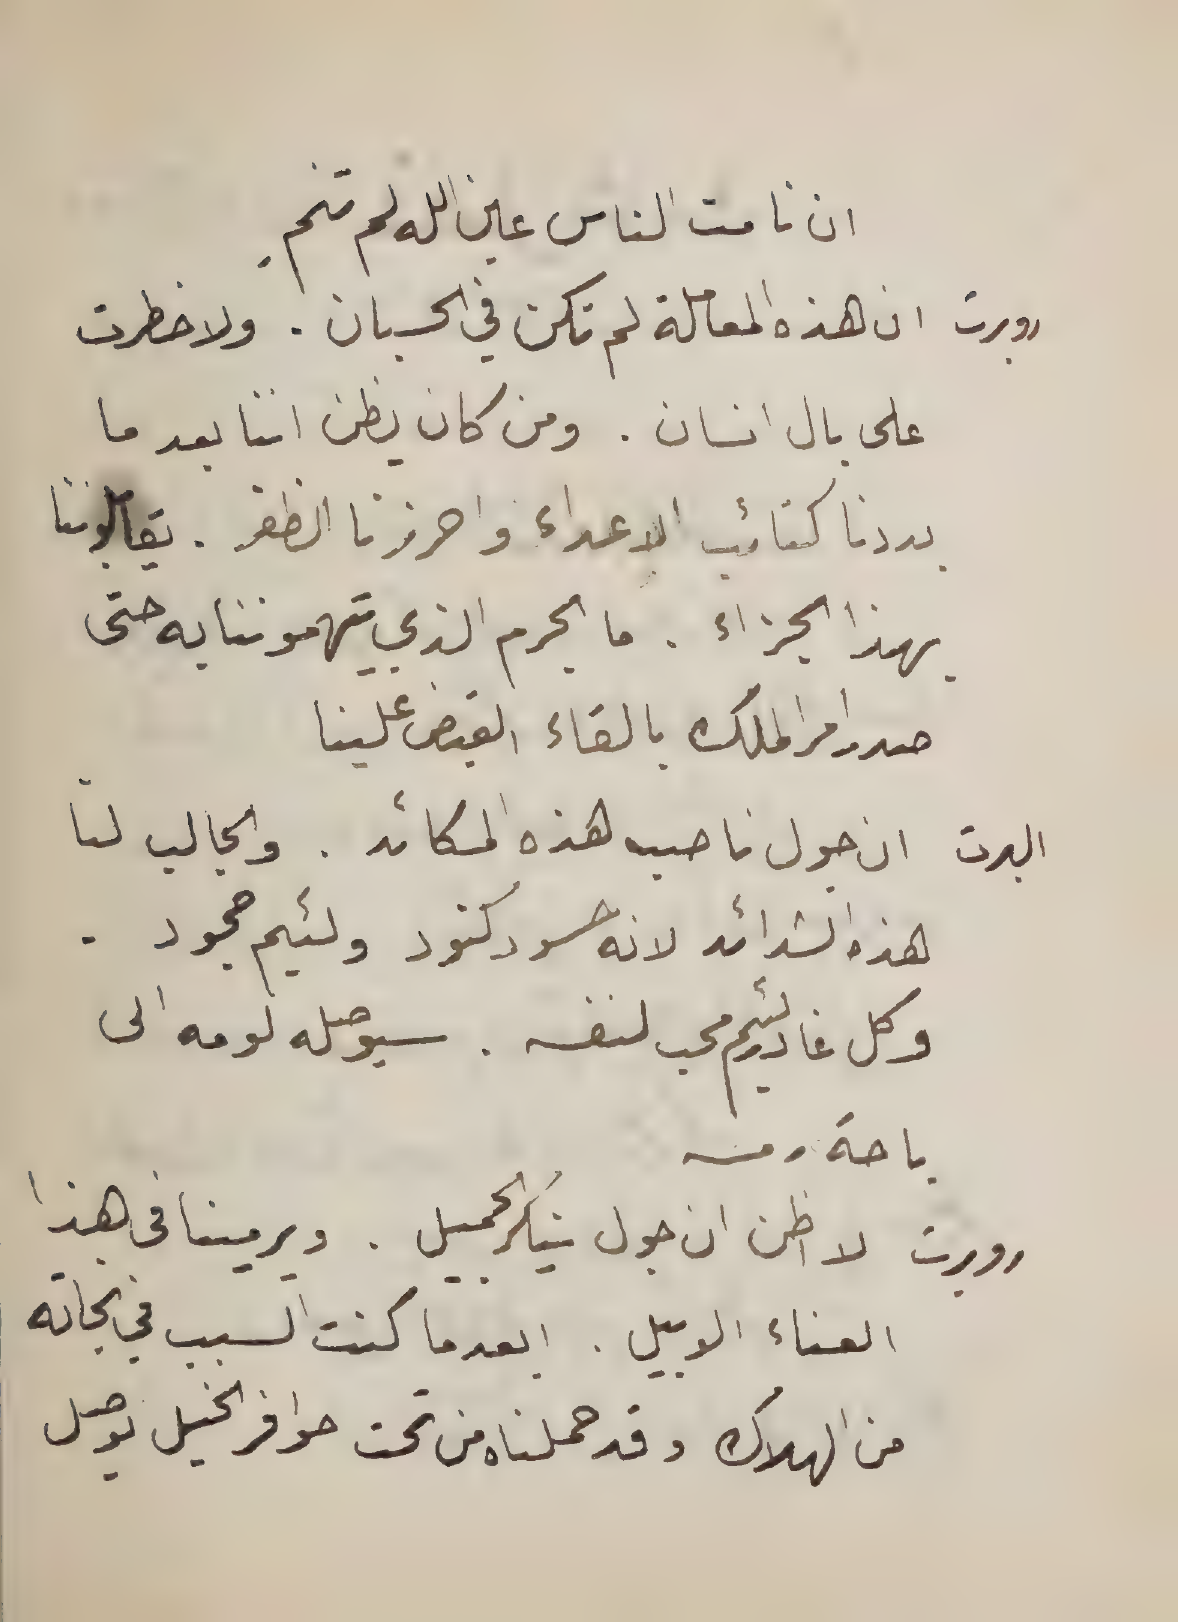 ان نامت الناس عين الله لم تنم
روبرت ان هذه المعاملة لم تكن في الحسبان . ولا خطرت
على بال انسان . ومن كان يظن اننا بعد ما
بددنا كتائب الاعداء واحرزنا الظفر . يقابلوننا
بهذا الجزاء . ما الجرم الذي يتهموننا به حتى
صدر امر الملك بالقاء القبض علينا
البرت ان جول ناصب هذه المكائد . والجالب لنا
هذه الشدائد لانه حسود كنود ولئيم جحود .
وكل غادر لئيم محب لنفسه . سيوصله لومه الى
باحة رمسه
روبرت لا اظن ان جول ينكر الجميل . ويرمينا في هذا
العناء الوبيل . ابعد ما كنت السبب في نجاته
من الهلاك وقد حملناه من تحت حوافر الخيل يوصل